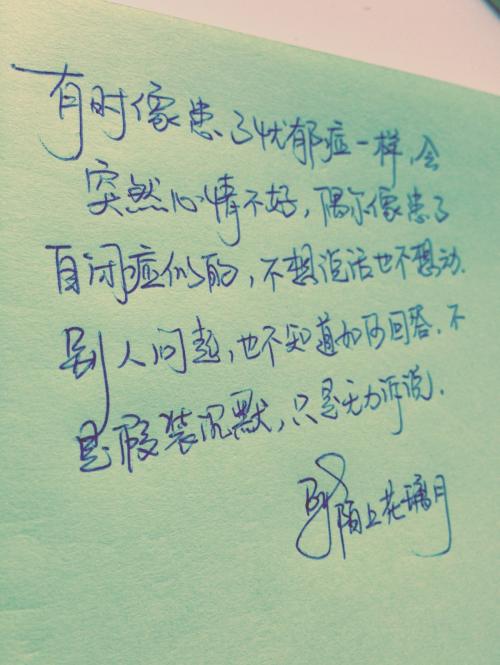 有时像患了忧郁症一样,会
突然心情不好,偶尔像患了
自闭症似的,不想说话也不想动.
别人问起,也不知道如何回答.不
是假装沉默,只是无力诉说.
陌上花璃月